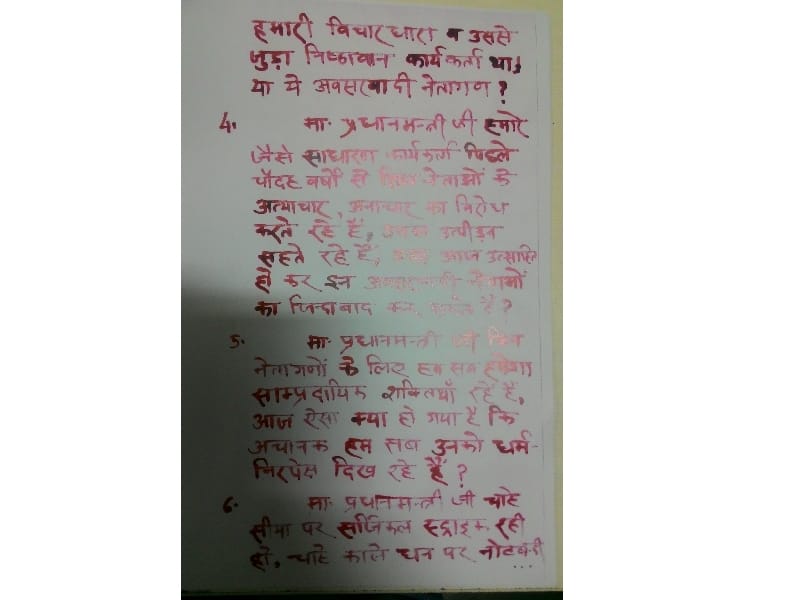 हमारी विचारधारा व उससे
जुड़ा निष्ठावान कार्यकर्ता था,
या ये अवसरवादी नेतागण ?
4. मा. प्रधानमन्त्री जी हमारे
जैसे साधारण कार्यकर्ता पिछले
चौदह वर्षों से जिन नेताओं के
अत्याचार, अनाचार का विरोध
करते रहे हैं, उनका उत्पीड़न
सहते रहे हैं, आज उत्साहित
हो कर इन अवसरवादी नेताओं
का जिन्दाबाद कर सकते हैं ?
5. मा. प्रधानमन्त्री जी जिन
नेतागणों के लिए हम सब हमेशा
साम्प्रदायिक शक्तियाँ रहे हैं,
आज ऐसा क्या हो गया है कि
अचानक हम सब उनको धर्म-
निरपेक्ष दिख रहे हैं ?
6. मा. प्रधानमन्त्री जी चाहे
सीमा पर सर्जिकल स्ट्राइक रही
हो, चाहे काले धन पर नोटबंदी
...